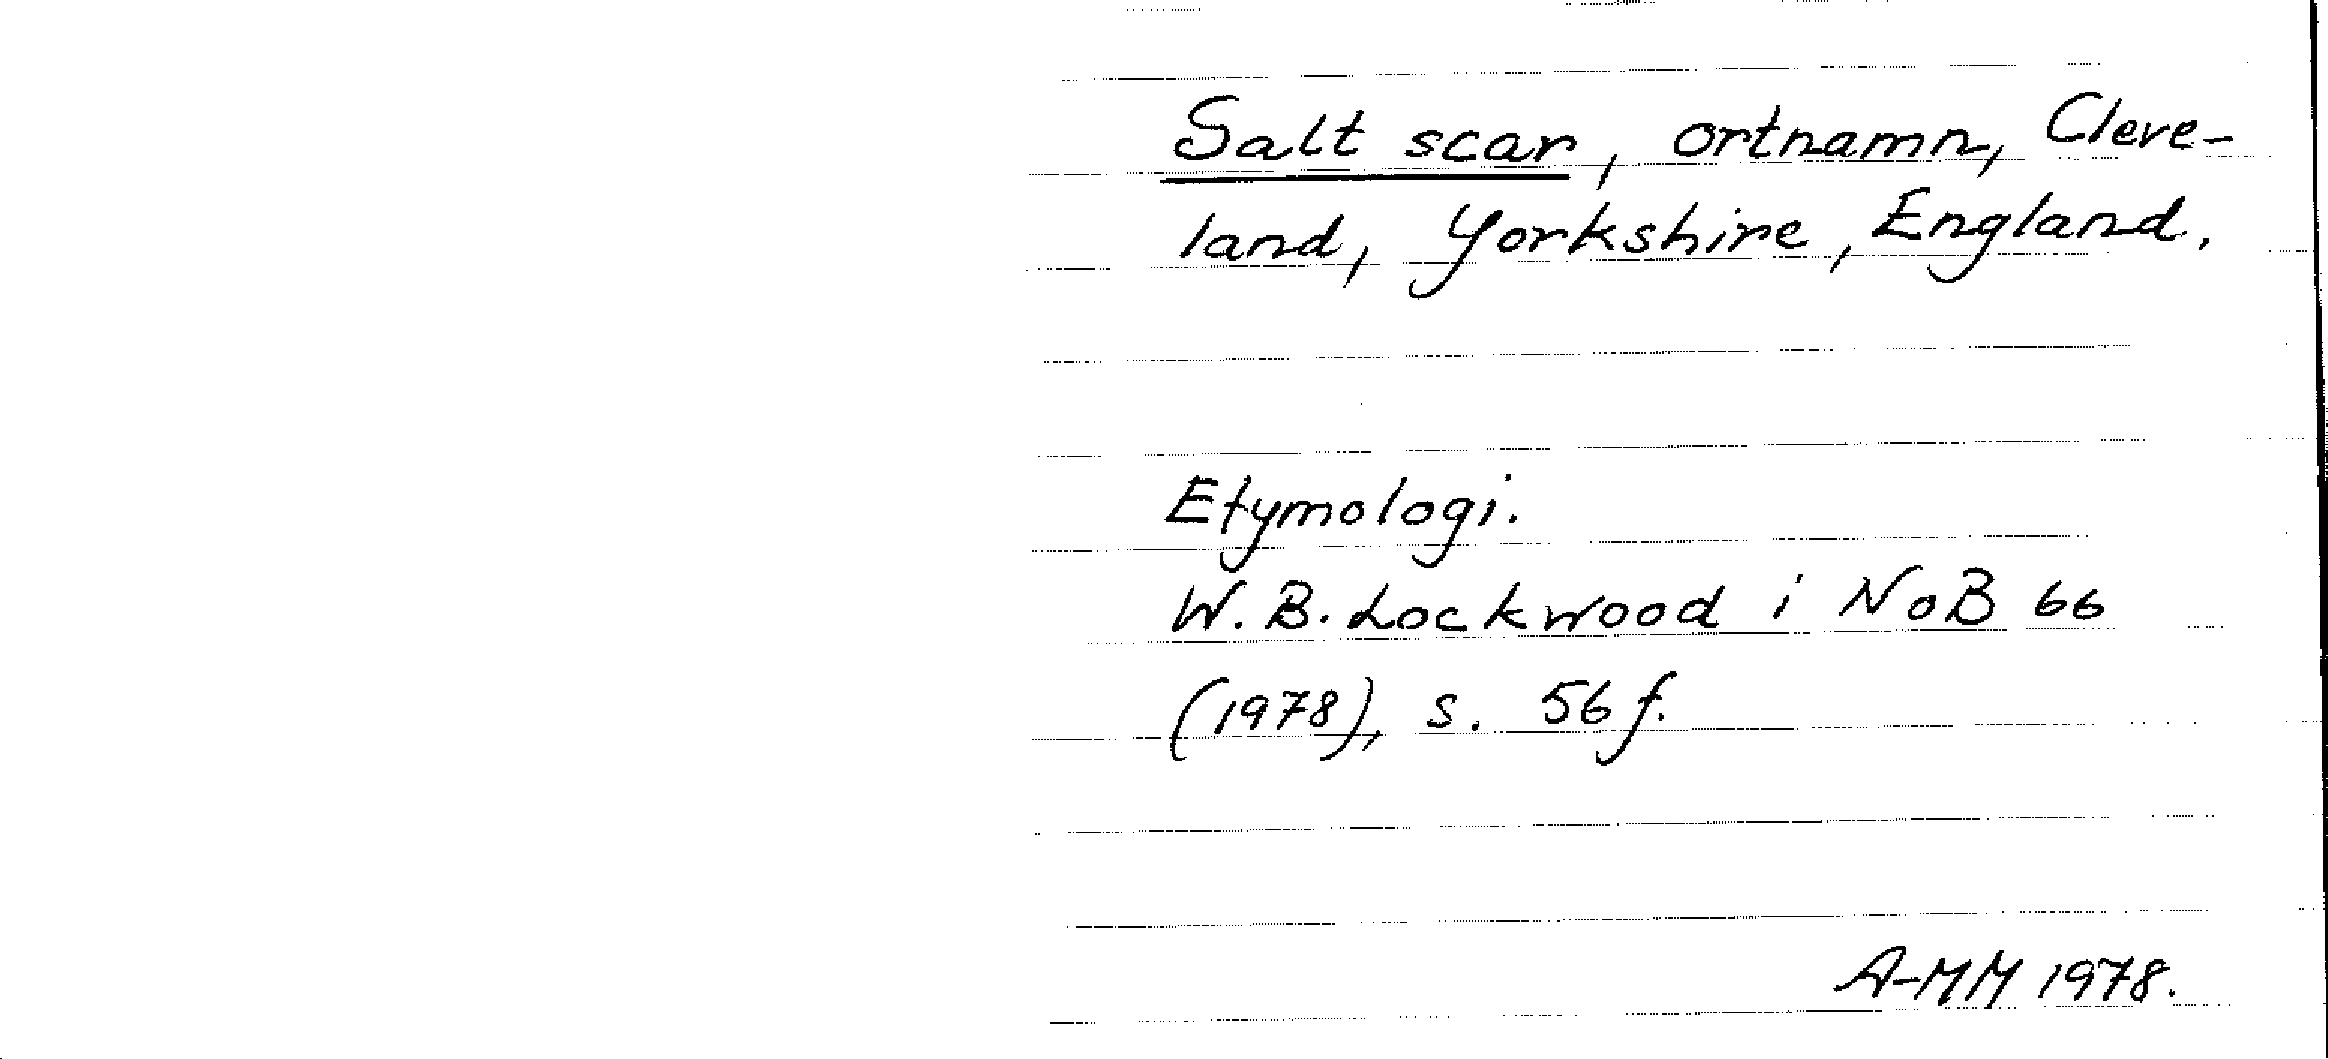 Salt scar, ortnamn, Cleve-
land, Yorkshire, England.
Etymologi.
W. B. Lockwood i NoB 66
(1978), s. 56 f.
A-MM 1978.